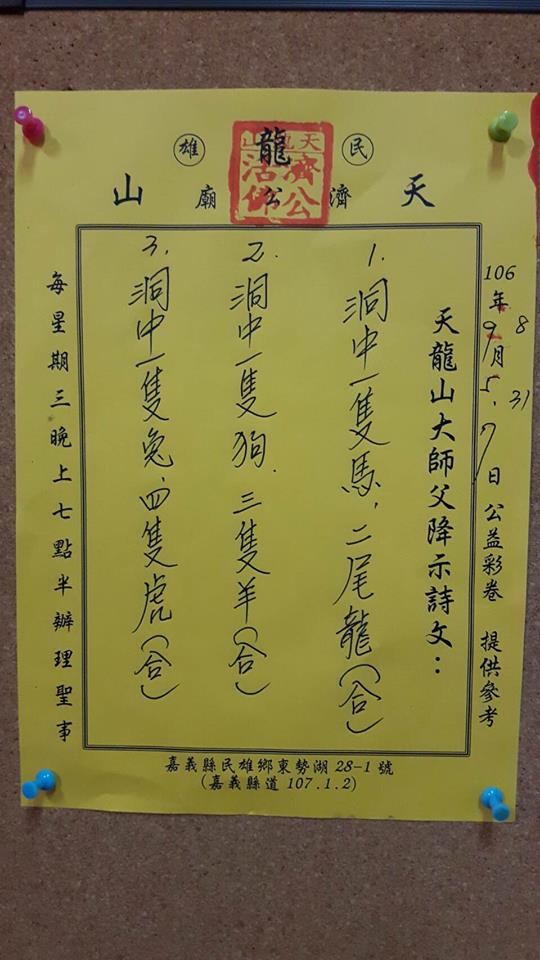 民雄
天龍山濟公廟
濟公活佛
106年 8 31 9月5、7日公益彩卷 提供參考
天龍山大師父降示詩文：
1. 洞中一隻馬，二尾龍（合）
2. 洞中一隻狗．三隻羊（合）
3. 洞中一隻兔、四隻虎（合）
每星期三晚上七點半辦理聖事
嘉義縣民雄鄉東勢湖28-1號
(嘉義縣道107.1.2)